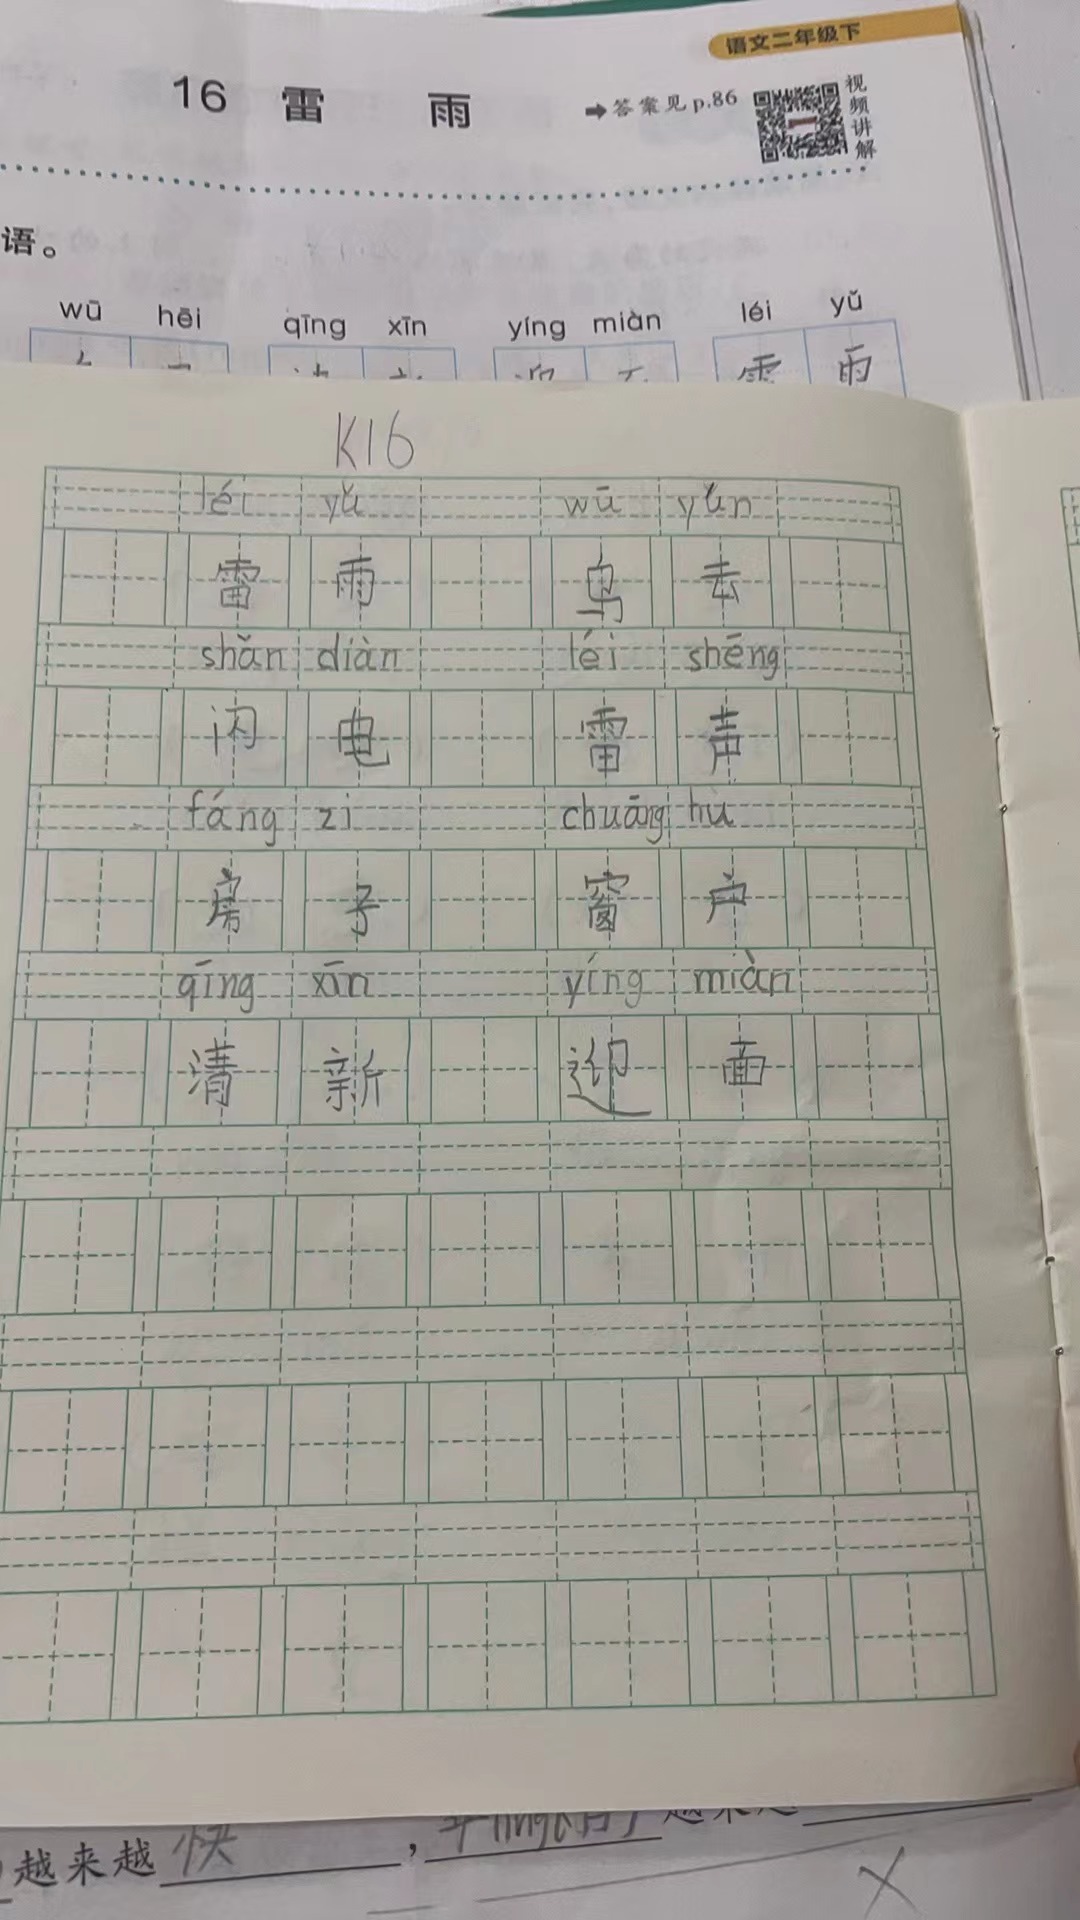 语文二年级下
16 雷 雨 ➡答案见p.86 视频讲解
语。
wū hēi qīng xīn yíng miàn léi yǔ
雷 雨
K16
léi yǔ wū yǔn
雷 雨 乌 云
shǎn diàn léi shēng
闪 电 雷 声
fáng zi chuāng hù
房 子 窗 户
qīng xīn yíng miàn
清 新 迎 面
越来越 快 ，